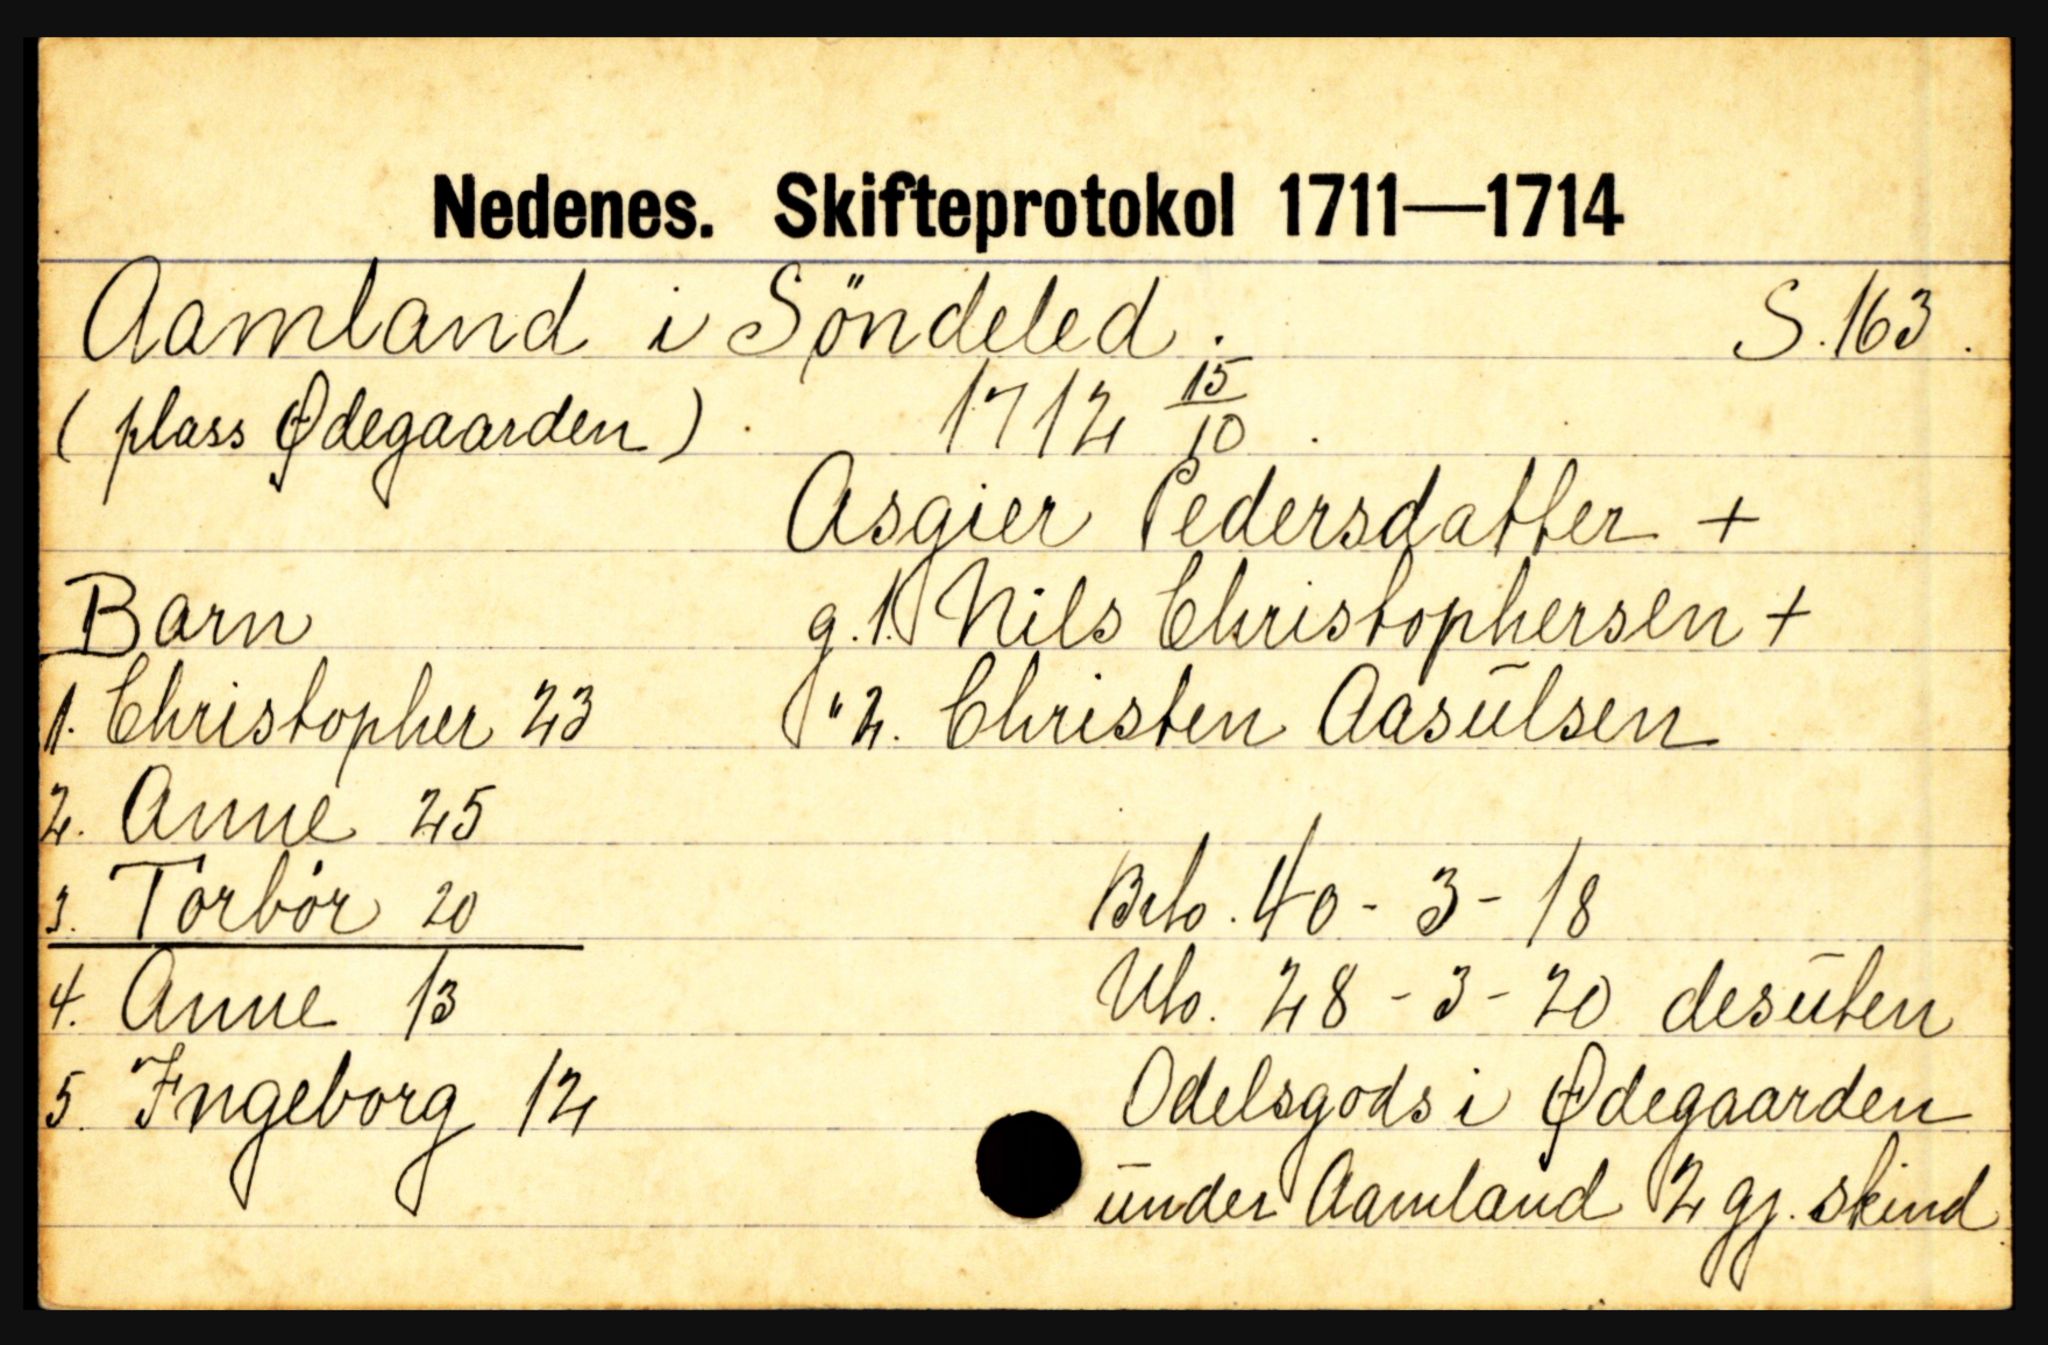 Nedenes. Skifteprotokol 1711—1714
Aamland i Söndeled. S. 163.
(plass Ødegaarden). 1712 15/10.
Asgier Pedersdatter +
Barn g. 1. Nils Christophersen +
1. Christopher 23 " 2. Christen Aasūlsen
2. Anne 25
3. Torbör 20 Brto. 40 - 3 - 18
4. Anne 13 Nto. 28 - 3 - 20 desūten
5. Ingeborg 12 Odelsgods i Ødegaarden
ūnder Aamland 2 gj. skind